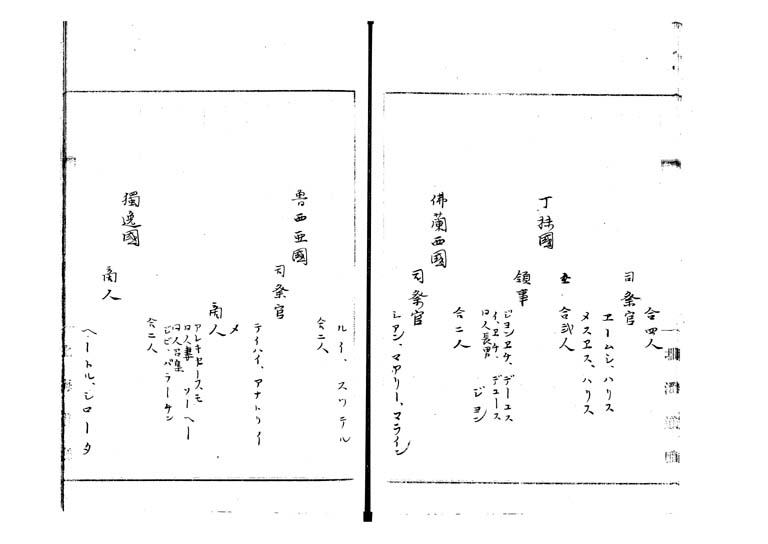 合四人
司祭官
エームシ、ハリス
メスヱス、ハリス
〆 合弐人
丁抹國
領事
ジヨンヱケ、デーユス
イ、ヱケ、デユース
同人長男 ジヨン
合二人
佛蘭西國
司祭官
シアン、マアリー、マライン
ルイ、スツテル
合二人
魯西亜國
司祭官
テイハイ、アナトリイ
メ
商人
アレキセースモ
同人妻 ソーヘー
合二人
獨逸國
商人
ヘートル、シロータ